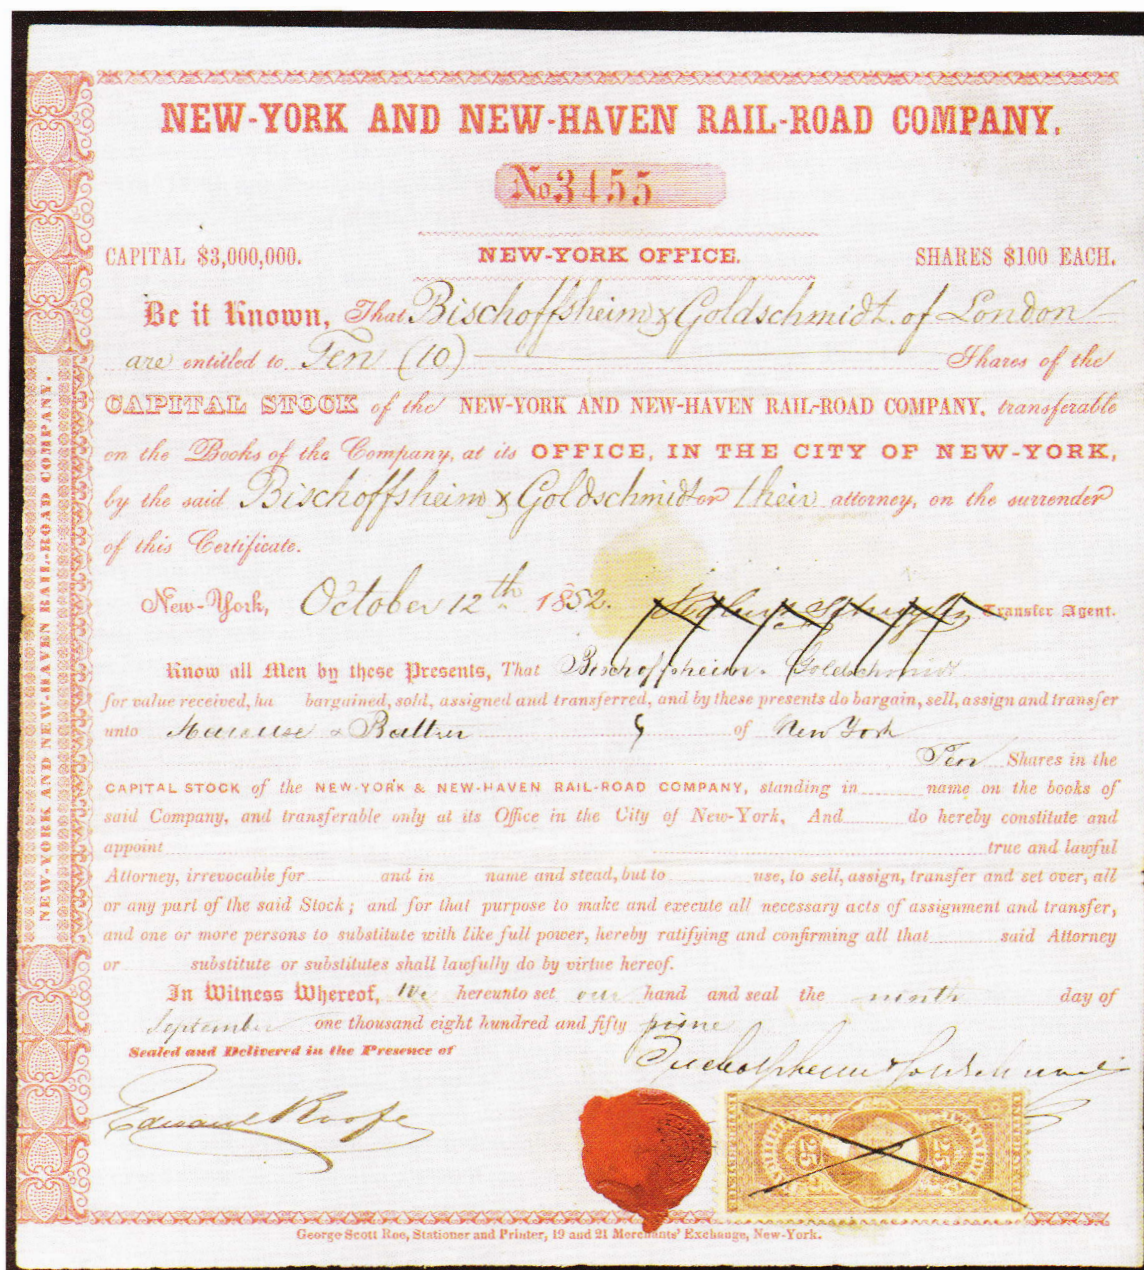 NEW-YORK AND NEW-HAVEN RAIL-ROAD COMPANY.
No 3455
CAPITAL $3,000,000. NEW-YORK OFFICE. SHARES $100 EACH.
Be it Known, That Bischoffsheim & Goldschmidt of London
are entitled to Ten (10) Shares of the
CAPITAL STOCK of the NEW-YORK AND NEW-HAVEN RAIL-ROAD COMPANY, transferable
on the Books of the Company, at its OFFICE, IN THE CITY OF NEW-YORK,
by the said Bischoffsheim & Goldschmidt or their attorney, on the surrender
of this Certificate.
New-York, October 12th 1852. Transfer Agent.
Know all Men by these Presents, That Bischoffsheim Goldschmidt
for value received, ha bargained, sold, assigned and transferred, and by these presents do bargain, sell, assign and transfer
unto & of New York
Ten Shares in the
CAPITAL STOCK of the NEW-YORK & NEW-HAVEN RAIL-ROAD COMPANY, standing in name on the books of
said Company, and transferable only at its Office in the City of New-York, And do hereby constitute and
appoint true and lawful
Attorney, irrevocable for and in name and stead, but to use, to sell, assign, transfer and set over, all
or any part of the said Stock; and for that purpose to make and execute all necessary acts of assignment and transfer,
and one or more persons to substitute with like full power, hereby ratifying and confirming all that said Attorney
or substitute or substitutes shall lawfully do by virtue hereof.
In Witness Whereof, We hereunto set our hand and seal the ninth day of
September one thousand eight hundred and fifty
Sealed and Delivered in the Presence of
25 25
George Scott Roe, Stationer and Printer, 19 and 21 Merchants' Exchange, New-York.
NEW-YORK AND NEW-HAVEN RAIL-ROAD COMPANY.